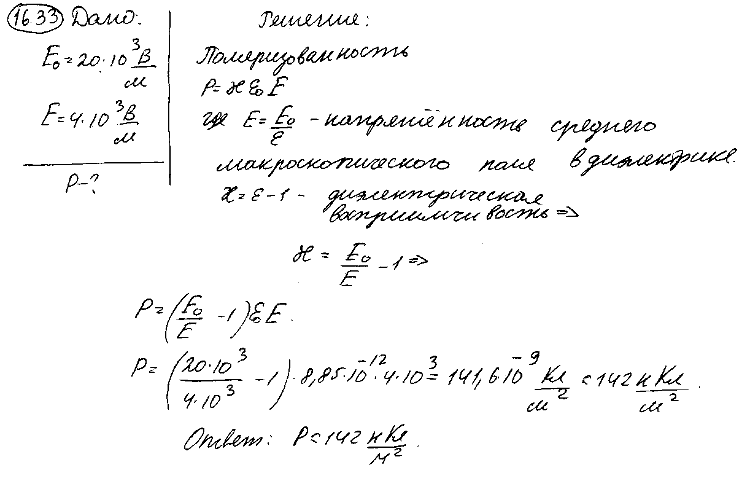 1633 Дано: Решение:
E₀=20·10³ В/м
E=4·10³ В/м
P-?
Поляризованность
P=ϰε₀E
где E=E₀/ε - напряжённость среднего
макроскопического поля в диэлектрике.
ϰ=ε-1 - диэлектрическая
восприимчивость =>
ϰ = E₀/E -1 =>
P=(E₀/E -1)ε₀E.
P=(20·10³/4·10³ -1)·8,85·10⁻¹²·4·10³=141,6·10⁻⁹ Кл/м² = 142 нКл/м².
Ответ: P=142 нКл/м².